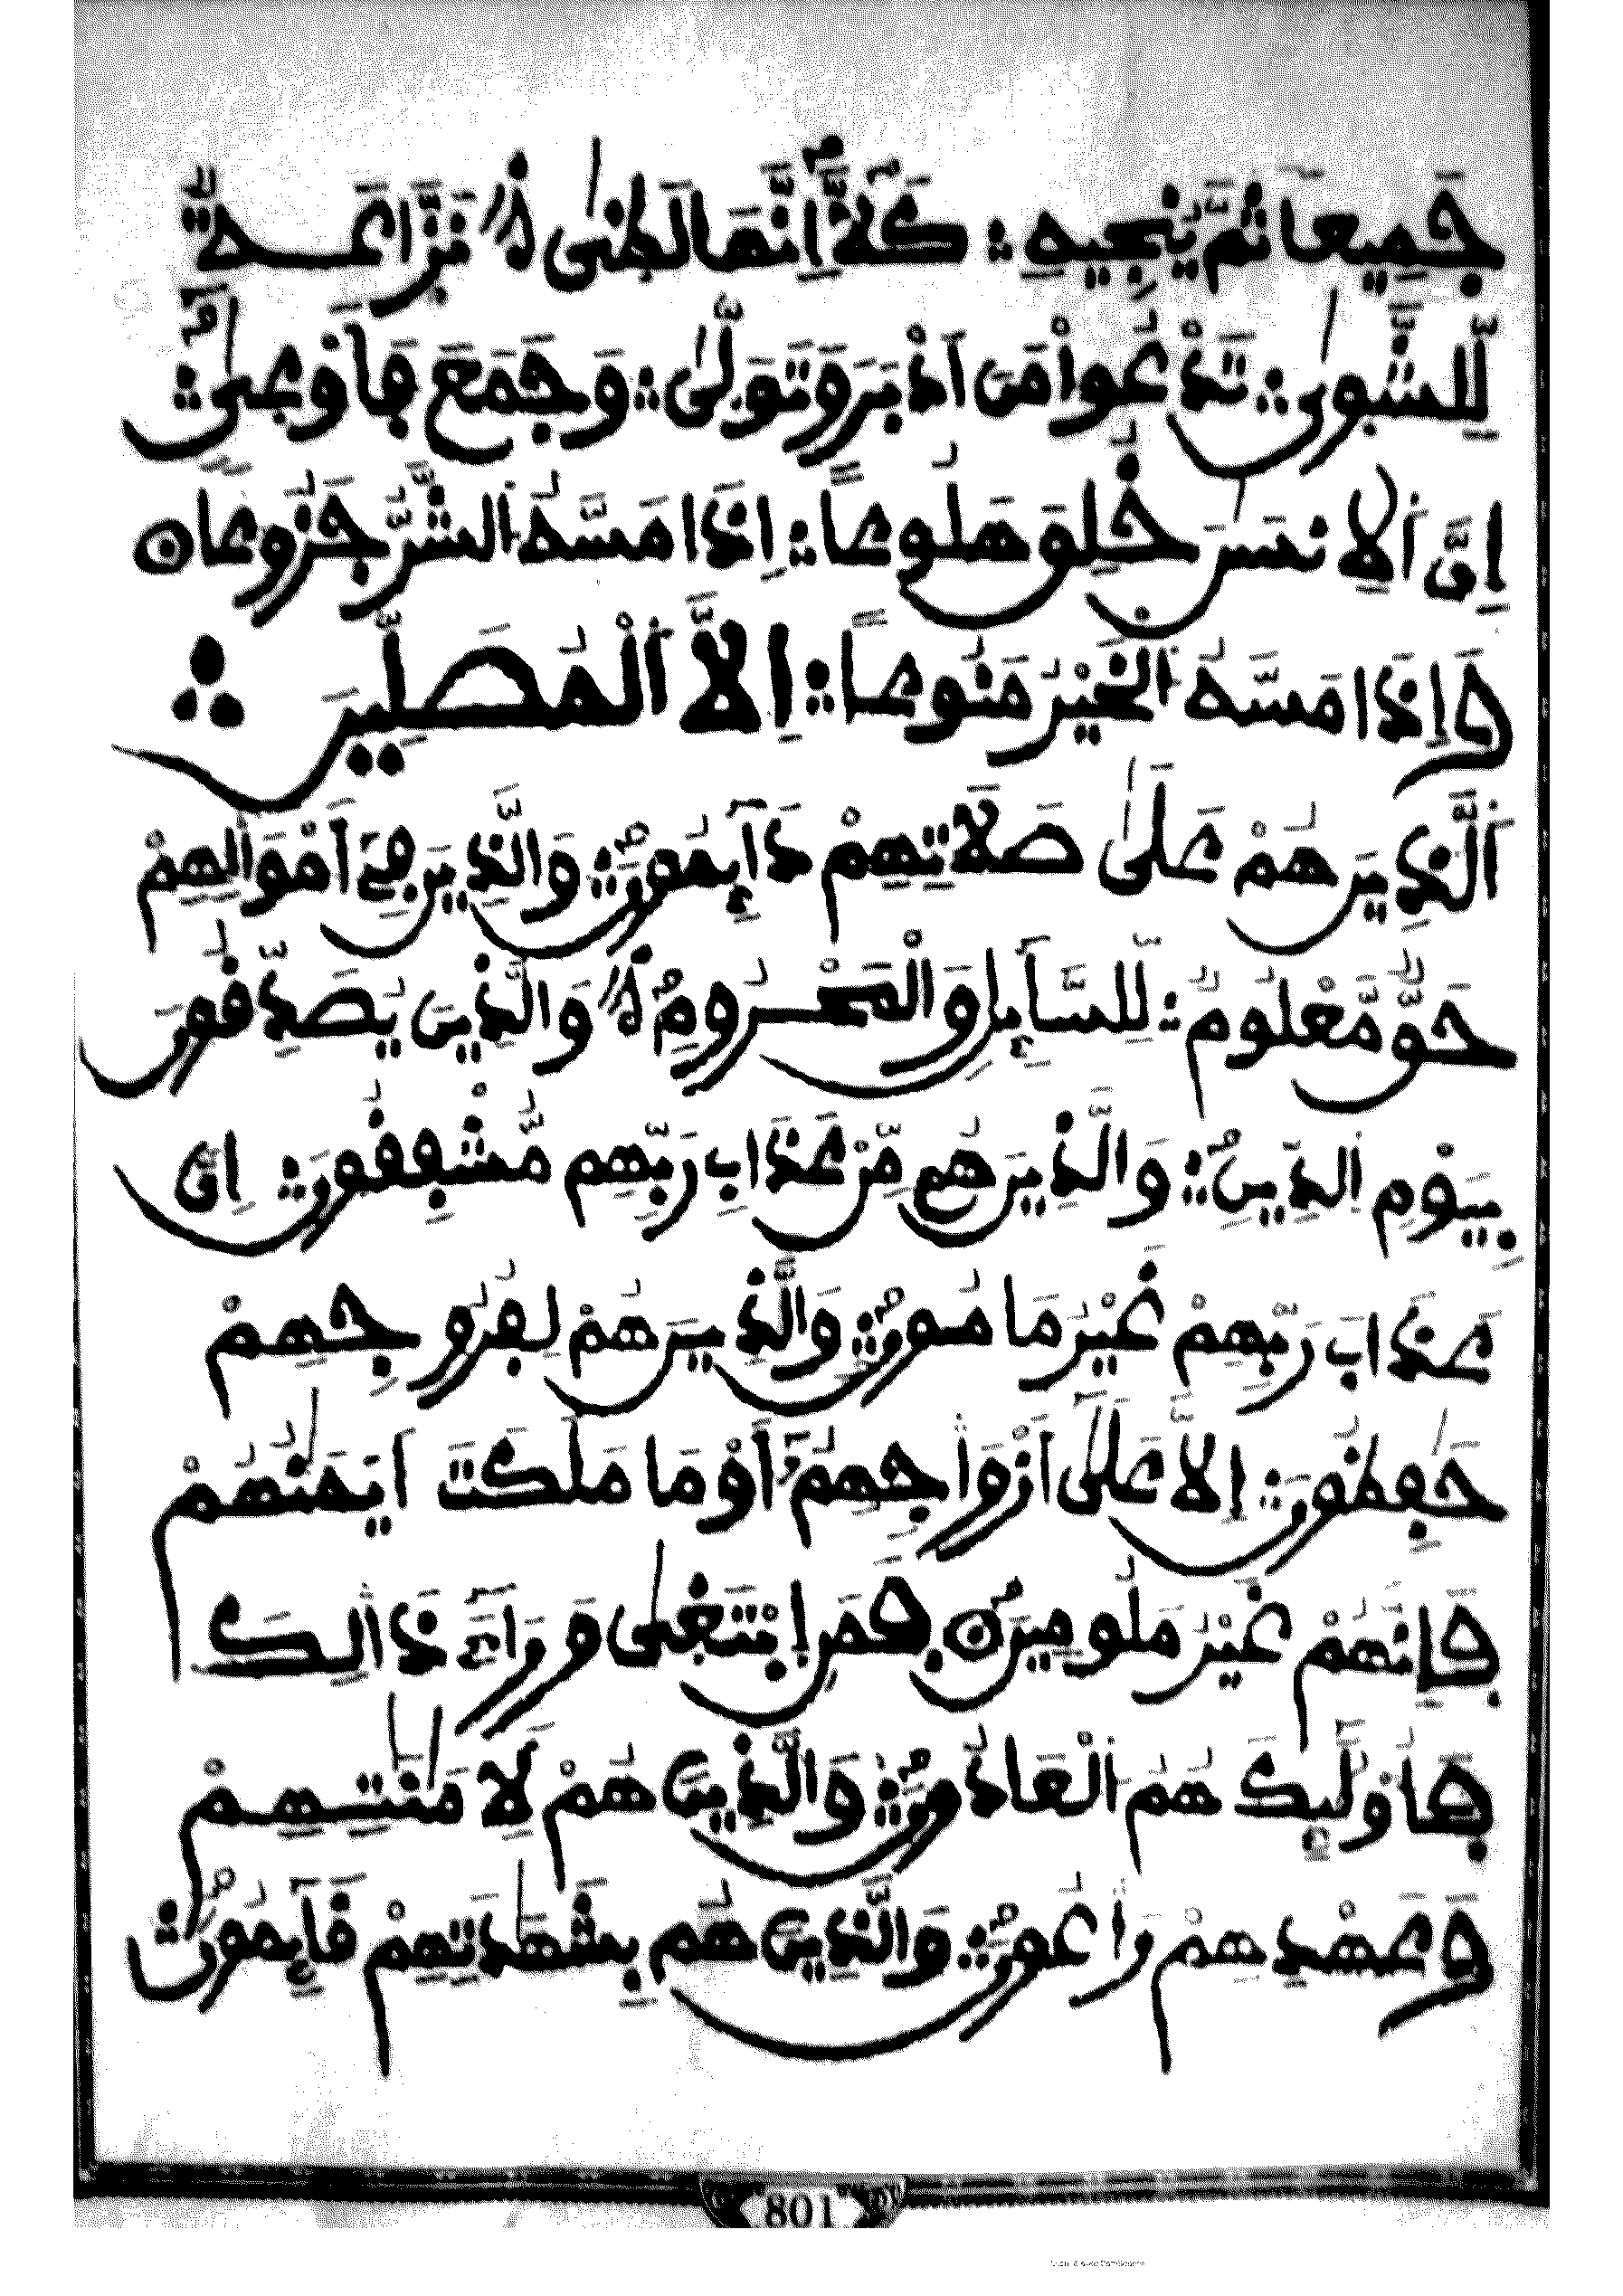 جَمِيعاً ثُمَّ يُنجِيهِ ؞ كَلَّآ إِنَّهَا لَظىٰ ۝ نَزَّاعَةٌ
لِّلشَّوىٰ ؞ تَدْعُواْ مَنَ اَدْبَرَ وَتَوَلّىٰ ؞ وَجَمَعَ فَأَوْعىٰ ؞
إِنَّ اَلِانسَٰنَ خُلِقَ هَلُوعاً ؞ إِذَا مَسَّهُ اُلشَّرُّ جَزُوعاً ۝
وَإِذَا مَسَّهُ اُلْخَيْرُ مَنُوعاً ؞ إِلاَّ اَلْمُصَلِّينَ ؞
اَلَّذِينَ هُمْ عَلَىٰ صَلَاتِهِمْ دَآئِمُونَ ؞ وَالَّذِينَ فِےٓ أَمْوَٰلِهِمْ
حَقٌّ مَّعْلُومٌ ؞ لِّلسَّآئِلِ وَالْمَحْرُومِ ۝ وَالَّذِينَ يُصَدِّقُونَ
بِيَوْمِ اِلدِّينِ ؞ وَالَّذِينَ هُم مِّنْ عَذَابِ رَبِّهِم مُّشْفِقُونَ ؞ إِنَّ
عَذَابَ رَبِّهِمْ غَيْرُ مَامُونٍ ؞ وَالَّذِينَ هُمْ لِفُرُوجِهِمْ
حَٰفِظُونَ ؞ إِلاَّ عَلَىٰٓ أَزْوَٰجِهِمُۥٓ أَوْ مَا مَلَكَتَ اَيْمَٰنُهُمْ
فَإِنَّهُمْ غَيْرُ مَلُومِينَ ۝ فَمَنِ اِبْتَغىٰ وَرَآءَ ذَٰلِكَ
فَأُوْلَٰٓئِكَ هُمُ اُلْعَادُونَ ؞ وَالَّذِينَ هُمْ لِأَمَٰنَٰتِهِمْ
وَعَهْدِهِمْ رَٰعُونَ ؞ وَالَّذِينَ هُم بِشَهَٰدَتِهِمْ قَآئِمُونَ
801